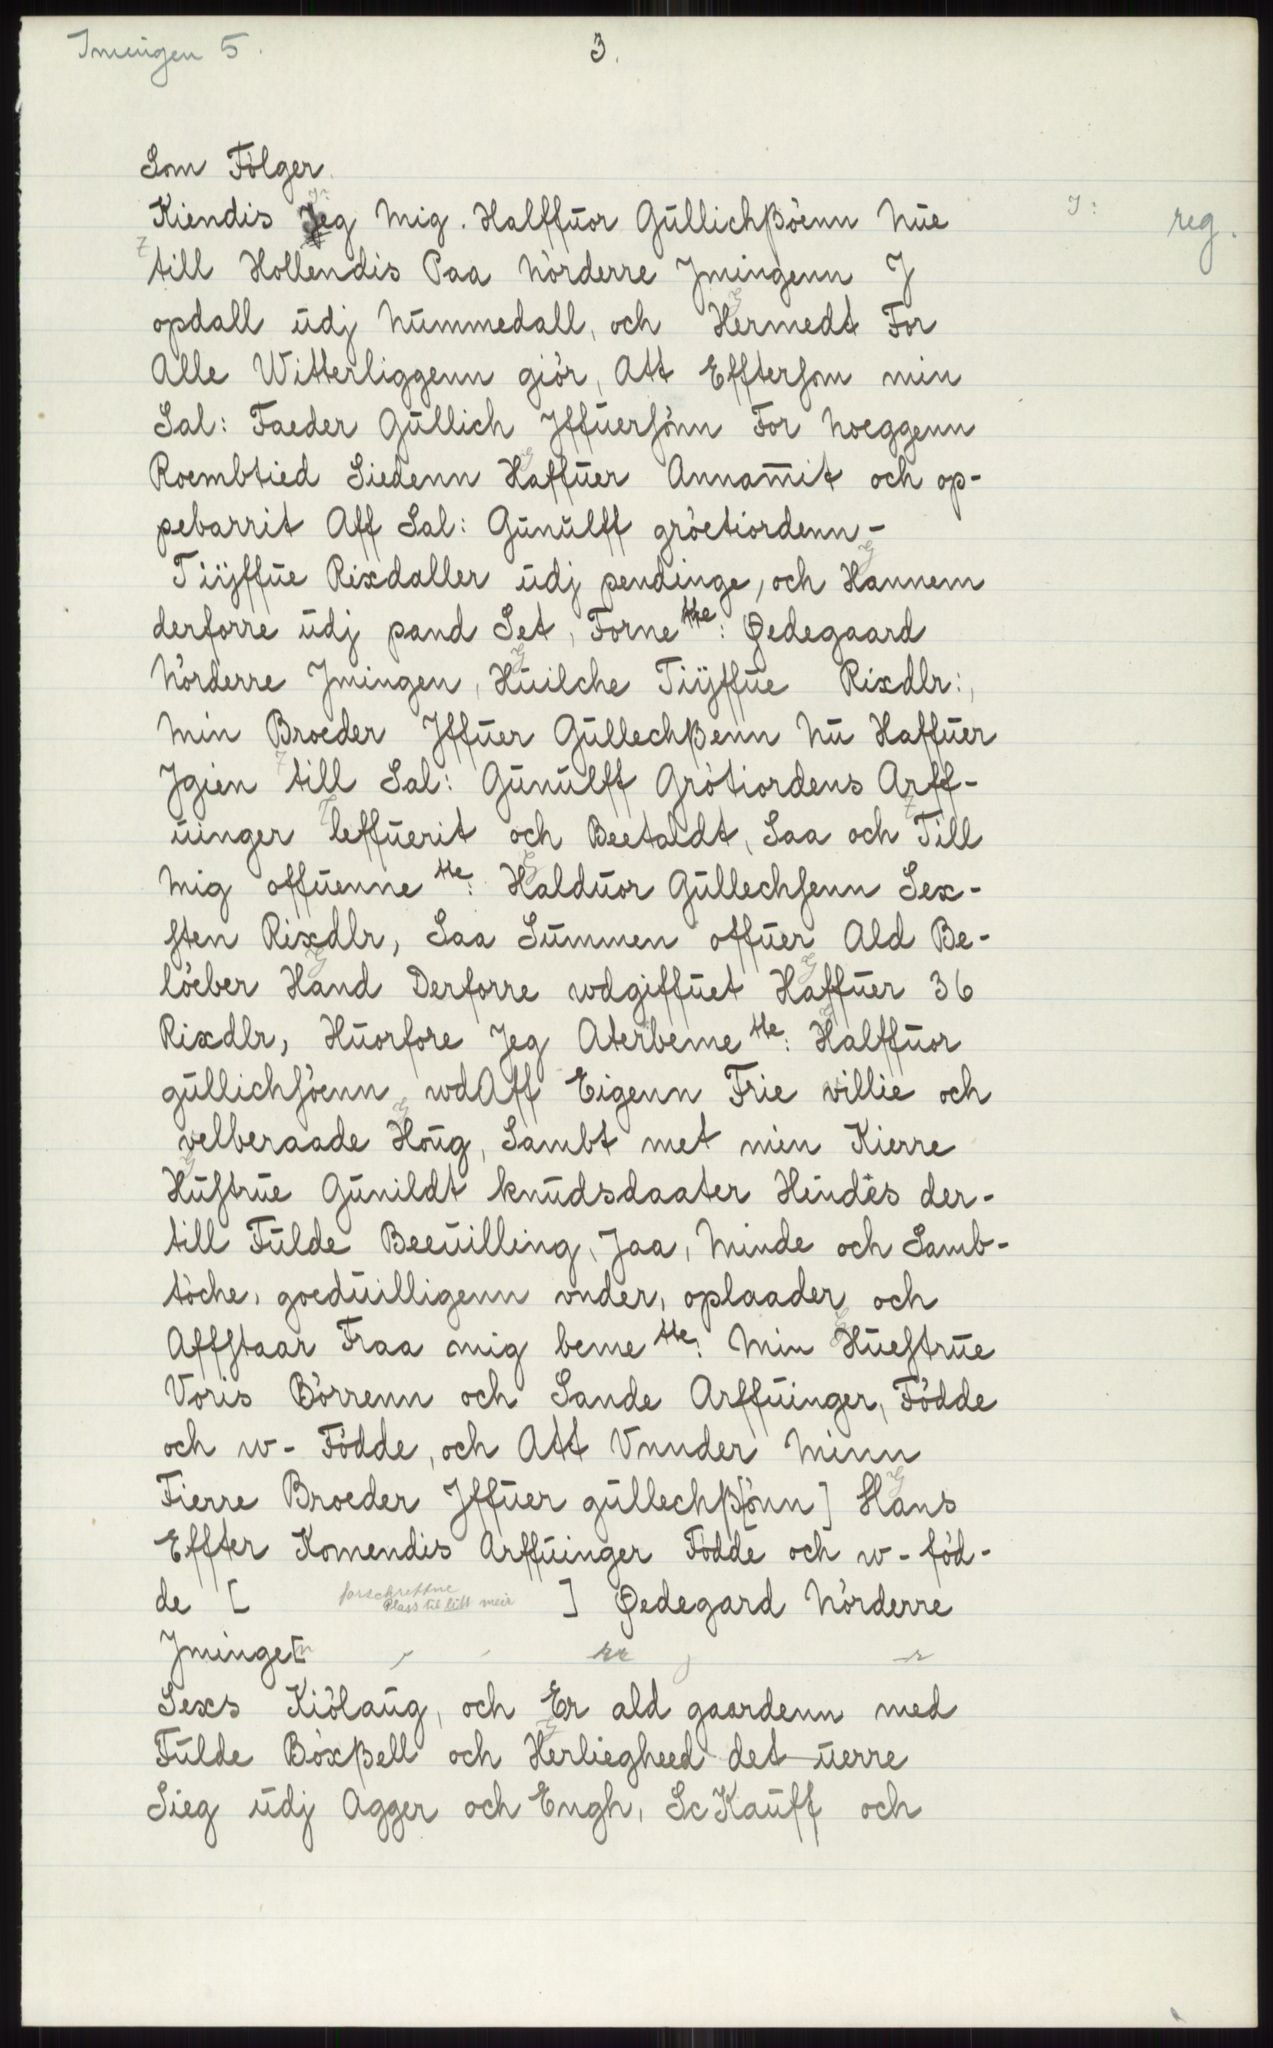 Imingen 5.
3.
Som Fölger.
Kiendis Jeg Mig. Halffuor Gullichßöenn Nue
J:
reg.
till Hollendis Paa Nörderre Jmingenn J
opdall udj Nummedall, och Hermedt For
Alle Witterliggenn giör, Att Efftersom min
Sal: Faeder Gullich Jffuersönn For Noeggenn
Roembtied Siedenn Haffuer Annam̅it och op-
pebarrit Aff Sal: Gunulff gröetiordenn-
Tiÿffue Rixdaller udj pendinge, och Hannem
derforre udj pand Set, Forne tte: Ødegaard
Nörderre Jmingen, Huilche Tiÿffue Rixdlr:,
Min Broeder Jffuer Gullechßenn Nu Haffuer
Jgien till Sal: Gunulff Grötiordens Arff-
uinger leffuerit och Beetaldt, Saa och Till
Mig offuenne tte: Halduor Gullechsenn Sex-
sten Rixdlr, Saa Summen offuer Ald Be-
löeber Hand Derforre wdgiffuet Haffuer 36
Rixdlr, Huorfore Jeg Aterbeme tte: Halffuor
gullichsöenn wdAff Eigenn Frie villie och
velberaade Houg, Sambt met min Kierre
Hustrue Gunildt knudsdaater Hindes der-
till Fulde Beeuilling, Jaa, Minde och Samb-
töche, goeduilligenn vnder, oplaader och
Affstaar Fraa mig beme tte: Min Huestrue
Voris Börrenn och Sande Arffuinger, Födde
och w- Födde, och Att Vnnder Minn
Fierre Broeder Jffuer gullechß[önn] Hans
Effter Komendis Arffuinger Födde och w- föd-
de [ forschreffne
Plass til litt meir ] Øedegard Nörderre
Jminge[n
Sexs Kiölaug, och Er ald gaardenn med
Fulde Böxßell och Herliegheed det uerre
Sieg udj Agger och Engh, Sc Kauff och